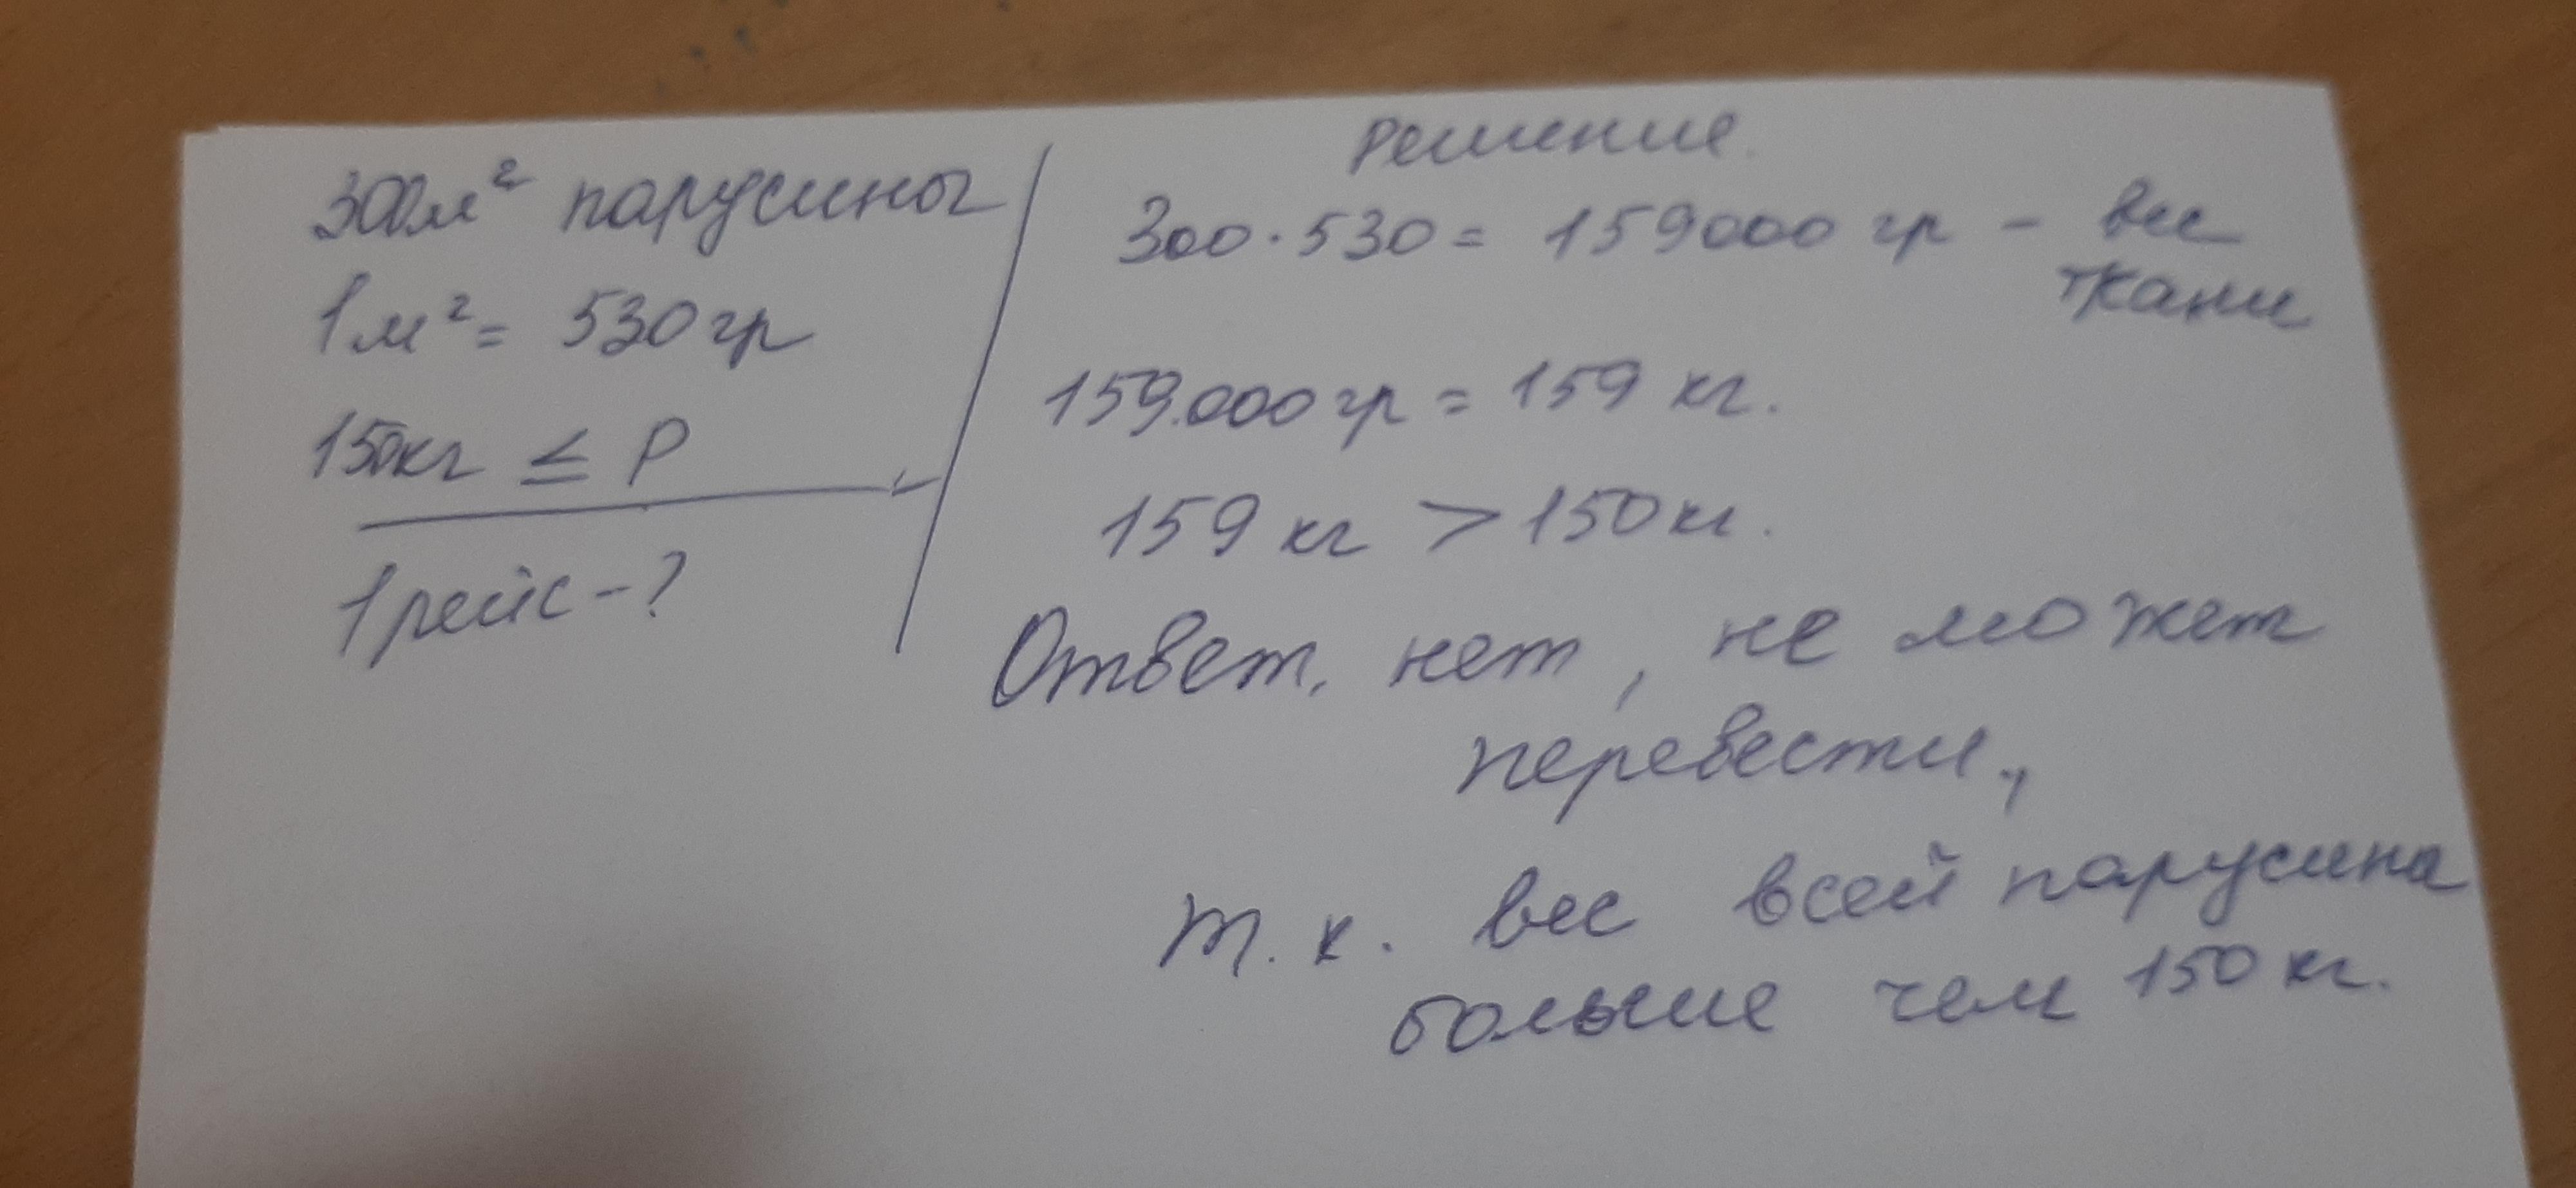 300м² парусины
1м² = 530 гр
150кг ≤ P
1 рейс - ?
Решение.
300 · 530 = 159000 гр - вес
ткани
159.000 гр = 159 кг.
159 кг > 150 кг.
Ответ. нет, не может
перевести.,
т. к. вес всей парусина
больше чем 150 кг.